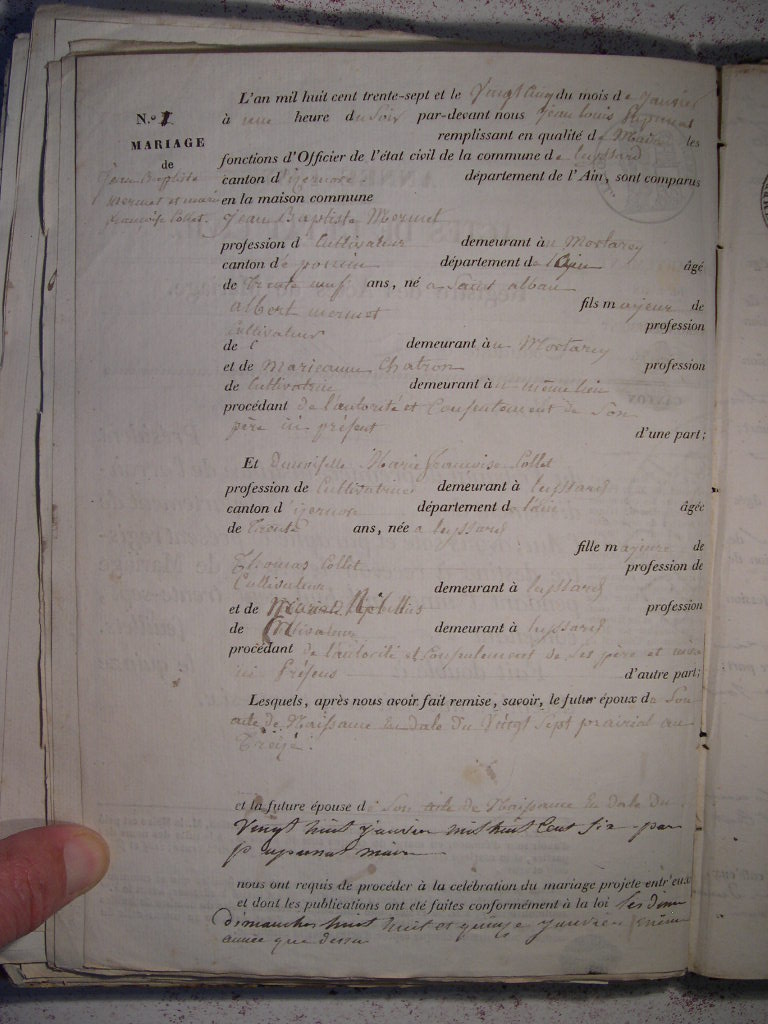 N.º 1
MARIAGE
de
Jean Baptiste
Mermet et marie
francoise Collet.
L'an mil huit cent trente-sept et le Vingt Cinq du mois de Janvier
à une heure du Soir par-devant nous Jean Louis
remplissant en qualité de Maire les
fonctions d'Officier de l'état civil de la commune de
canton d'izernore. département de l'Ain, sont comparus
en la maison commune
Jean Baptiste Mermet
profession de Cultivateur demeurant à Mortarey
canton de poncin département de l'Ain âgé
de Trente neuf ans, né a Saint alban
fils majeur de
albert mermet profession
Cultivateur
de demeurant à Mortarey
et de Marieanne Chatron profession
de Cultivatrice demeurant à même lieu
procédant de l'autorité et Consentement de Son
père ici présent
d'une part;
Et Demoiselle Marie françoise Collet
profession de Cultivatrice demeurant à
canton d'izernore département de l'ain âgée
de Trente ans, née a
fille majeure de
Thomas Collet profession de
Cultivateur demeurant à
et de profession
de Cultivateur demeurant à
procédant de l'autorité et Consentement de Ses père et mère
ici présens d'autre part;
Lesquels, après nous avoir fait remise, savoir, le futur époux de Son
acte de Naissance en date du Vingt Sept prairial an
Treize.
et la future épouse de Son acte de Naissance en date du
Vingt huit janvier mil huit Cent Six par
maire
nous ont requis de procéder à la celébration du mariage projeté entr'eux
et dont les publications ont été faites conformément à la loi les deux
dimanches huit et quinze janvier même
année que dessus